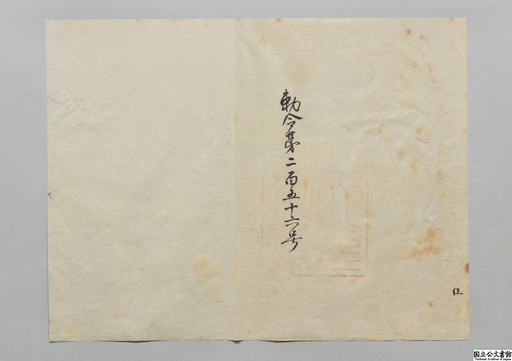 勅令第二百五十六号
国立公文書館
National Archives of Japan